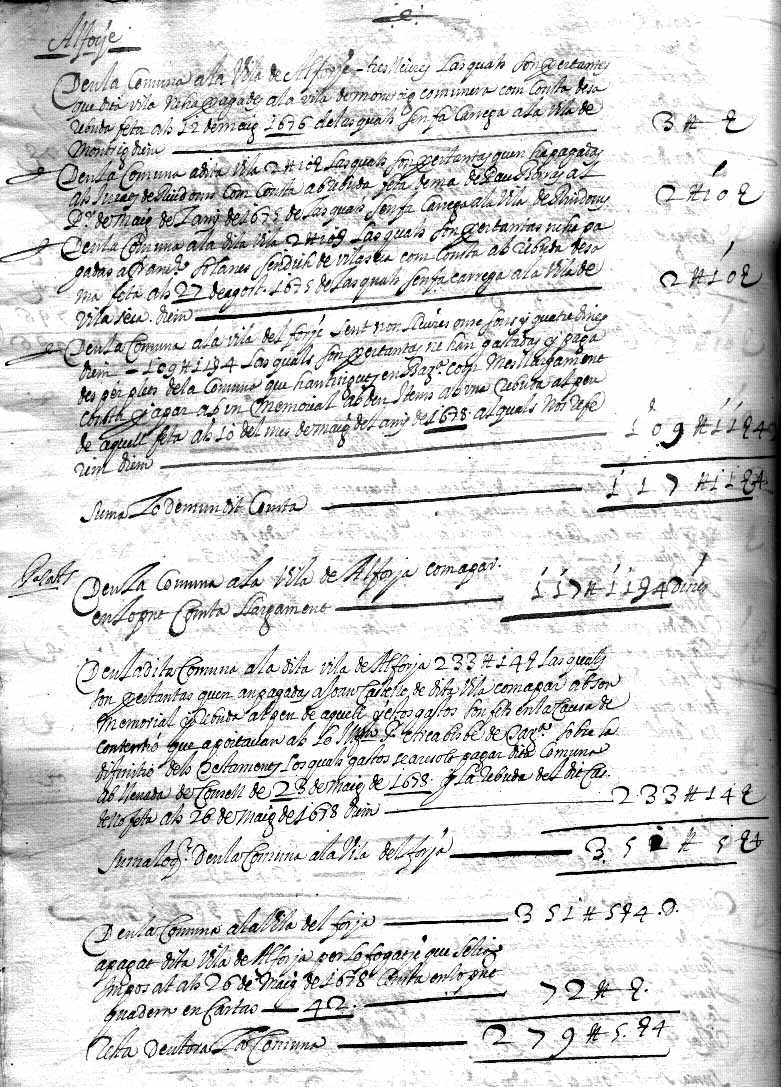 Alforje
Deu la Comuna a la Vila de Alforje - tres lliures Las quals son per tantes
que dita vila ne ha pagades a la vila de montroig comunera com consta de sa
Rebuda feta als 12 de maig 1676 de les quals sen fa Carrega a la Vila de
Montroig diem 3 ll s
Deu la Comuna a dita Vila 2 ll 10 s Las quals son per tantas quen ha pagadas
als Jurats de Riudoms Com Consta ab rebuda feta de ma de Pau al
Pr. de Maig de Lany de 1675 de las quals sen fa Carrega a la Vila de Riudoms 2 ll 10 s
Deu la Comuna a la dita vila 2 ll 10 s Las quals son per tantas ne ha pa
gadas a Fran.ch Solanes Sindich de vilaseca com Consta ab Rebuda de sa
ma feta als 27 de agost 1675 de las quals sen fa carrega a la Vila de
Vila seca. diem 2 ll 10 s
Deu la Comuna a la vila del forje sent nou lliures onse sous y quatre dines
diem - 109 ll 11 s 4 Las quals son per tantas ne han gastades y paga
des per pleits de la Comuna que han tingut en Bar.na com Mes llargament
consta y apar ab un Memorial ab den Items ab una Rebuda al peu
de aquell feta als 10 del mes de maig del any de 1678 al quals Nos refe
rem diem 109 ll 11 s 4
Suma Lo demundit Conta 117 ll 11 s 4.
Deu La Comuna a la Vila de Alforja com apar
en Lo pnt Conta Llargament 117 ll 11 s 4 dines
Deu la dita Comuna a la dita vila de Alforja 233 ll 14 s Las quals
son per tantas quen an pagadas a Joan de dita Vila com apar ab son
Memorial y Rebuda al peu de aquell y estos gastos son fets en la Causa de
contentió que aportauan ab Lo Sr. Archabisbe de Tar.na sobre la
difinitió dels Testaments Los quals gastos se acordo pagar dita Comuna
ab llevada de Consell de 23 de maig de 1678 y La rebuda del dit Cas
tello feta als 26 de maig de 1678 diem 233 ll 14 s
Suma Lo q. Deu la Comuna a la Vila del forja 351 ll 5 s 4
Deu la Comuna a la Vila del forja 351 ll 5 s 4 D.
a pagat dita Vila de Alforja per Lo fogatje que seli
Imposat als 26 de Maig de 1678 Consta en lo pnt
quadern en Cartas - 42. 72 ll s.
Resta deutora La Comuna 279 ll 5 s 4